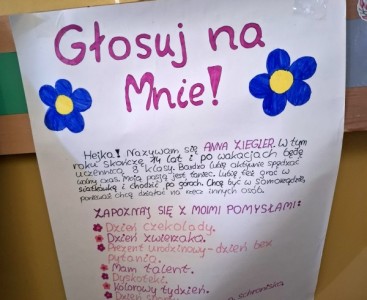 Głosuj na
Mnie!
Hejka! Nazywam się ANNA ZIEGLER. W tym
roku skończę 14 lat i po wakacjach będę
uczennicą 8 klasy. Bardzo lubię aktywnie spędzać
wolny czas. Moją pasją jest taniec. Lubię też grać w
siatkówkę i chodzić po górach. Chcę być w Samorządzie,
ponieważ chcę działać na rzecz innych osób.
ZAPOZNAJ SIĘ Z MOIMI POMYSŁAMI:
Dzień czekolady.
Dzień zwierzaka.
Prezent urodzinowy - dzień bez
pytania.
Mam talent.
Dyskoteki.
Kolorowy tydzień.
Dzień
schroniska